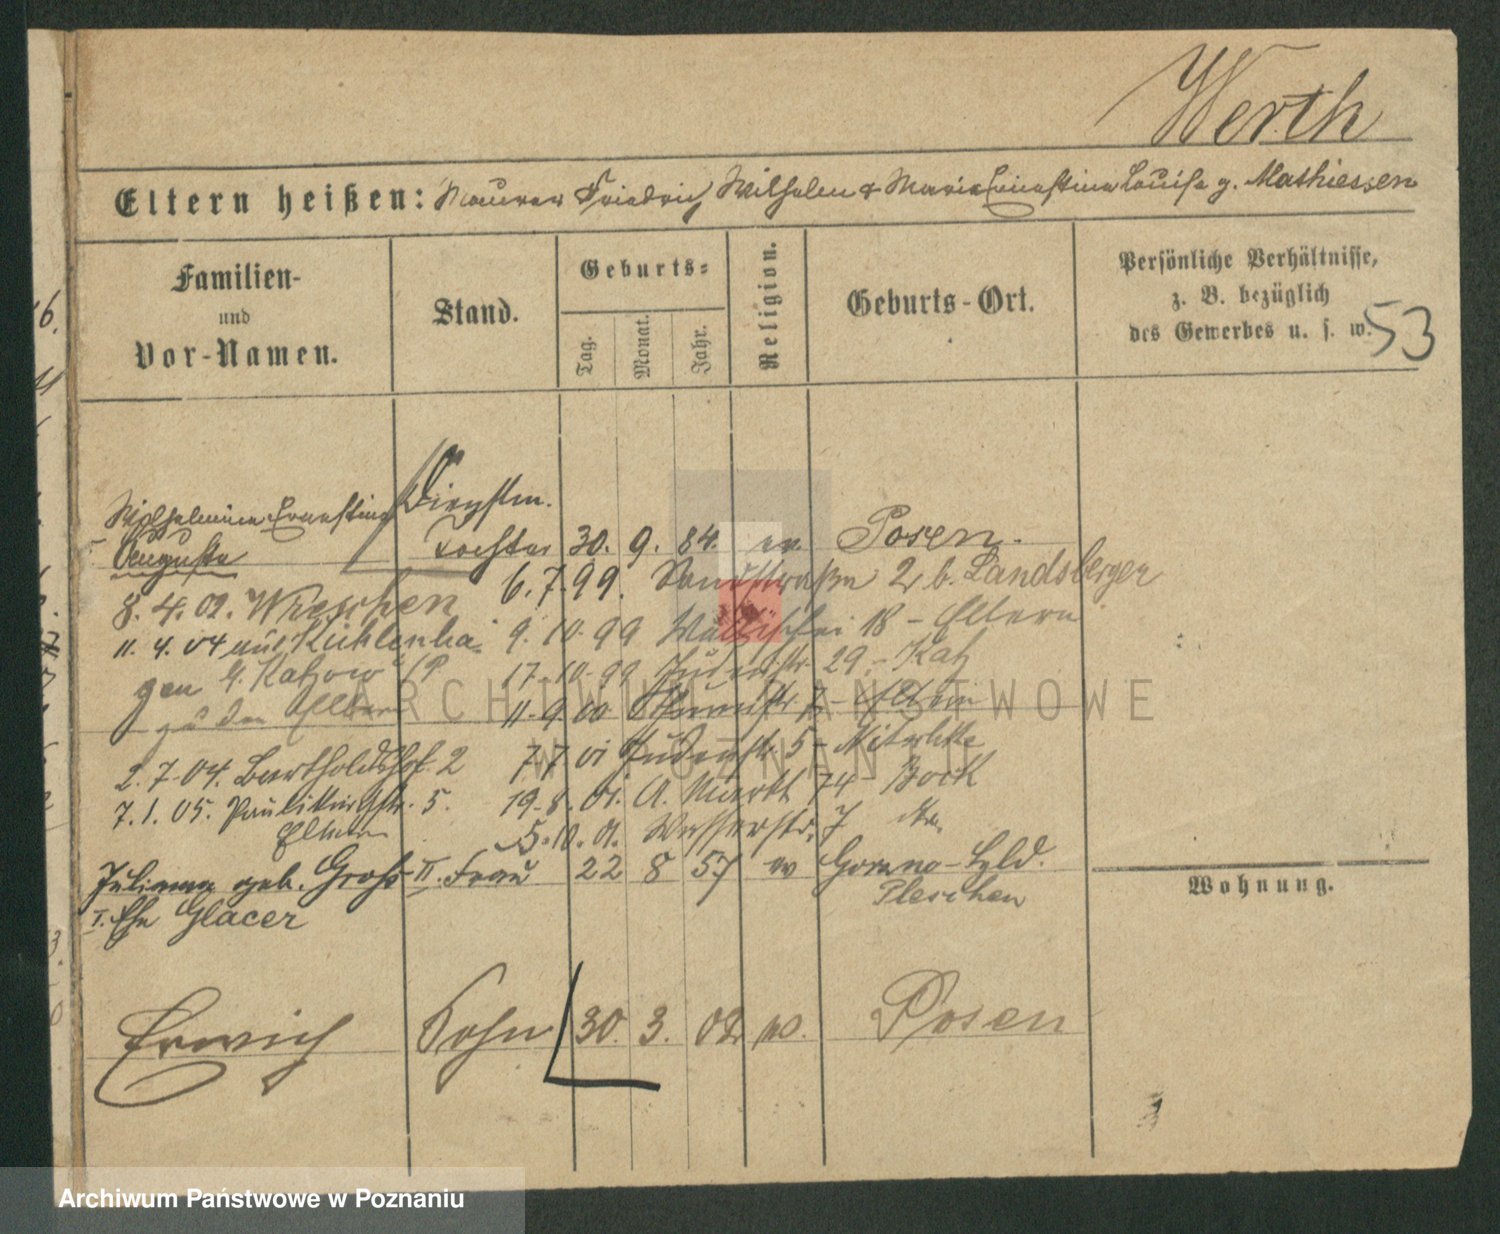 Werth
Eltern heißen: Maurer Friedrich Wilhelm & Marie Ernestine Louise g. Mathiessen
Familien-
und
Vor-Namen.
Stand.
Geburts-
Tag.
Monat.
Jahr.
Religion.
Geburts-Ort.
Persönliche Verhältnisse,
z. B. bezüglich
des Gewerbes u. s. w.
53
Wilhelmine Ernestine Dienstm.
Auguste Tochter 30. 9. 84. ev. Posen.
6.7.99. Sandstraße 2, b. Landsberger
8. 4. 02. Wreschen
9.10.99 Wallischei 18 - Eltern
11. 4. 04 aus Kuhlenha-
gen
17.10.99 Judenstr. 29. - Katz
zu den Eltern
11.9.00 - Eltern
2.7.04. Bartholdshof. 2
7.7.01 Judenstr. 5 -
7.1.05. Paulikirchstr. 5.
Eltern
19.8.01. A. Markt 74 Bock
5.10.01. Wasserstr. 7
Juliana geb. Gross II. Frau 22 8 57 ev Gorzno-Lld.
Pleschen
I. Ehe Glacer
Wohnung.
Erwich Sohn 30. 3. 02 ev. Posen
ARCHIWUM PAŃSTWOWE
W POZNANIU
Archiwum Państwowe w Poznaniu